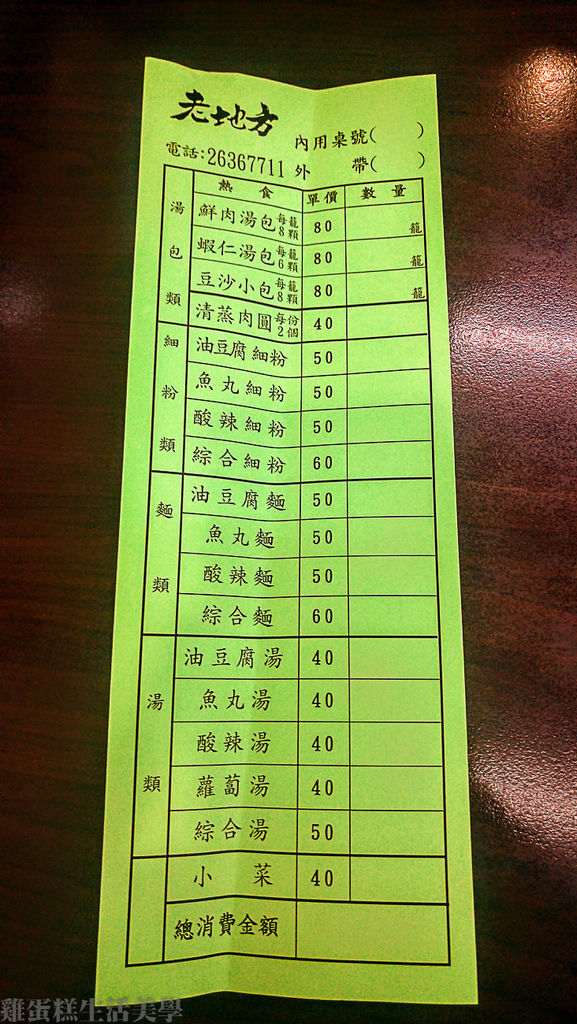 老地方
內用桌號( )
電話:26367711 外 帶( )
熱 食 單價 數 量
湯包類
鮮肉湯包 每籠8顆 80 籠
蝦仁湯包 每籠6顆 80 籠
豆沙小包 每籠8顆 80 籠
清蒸肉圓 每份2個 40
細粉類
油豆腐細粉 50
魚丸細粉 50
酸辣細粉 50
綜合細粉 60
麵類
油豆腐麵 50
魚丸麵 50
酸辣麵 50
綜合麵 60
湯類
油豆腐湯 40
魚丸湯 40
酸辣湯 40
蘿蔔湯 40
綜合湯 50
小 菜 40
總消費金額
雞蛋糕生活美學